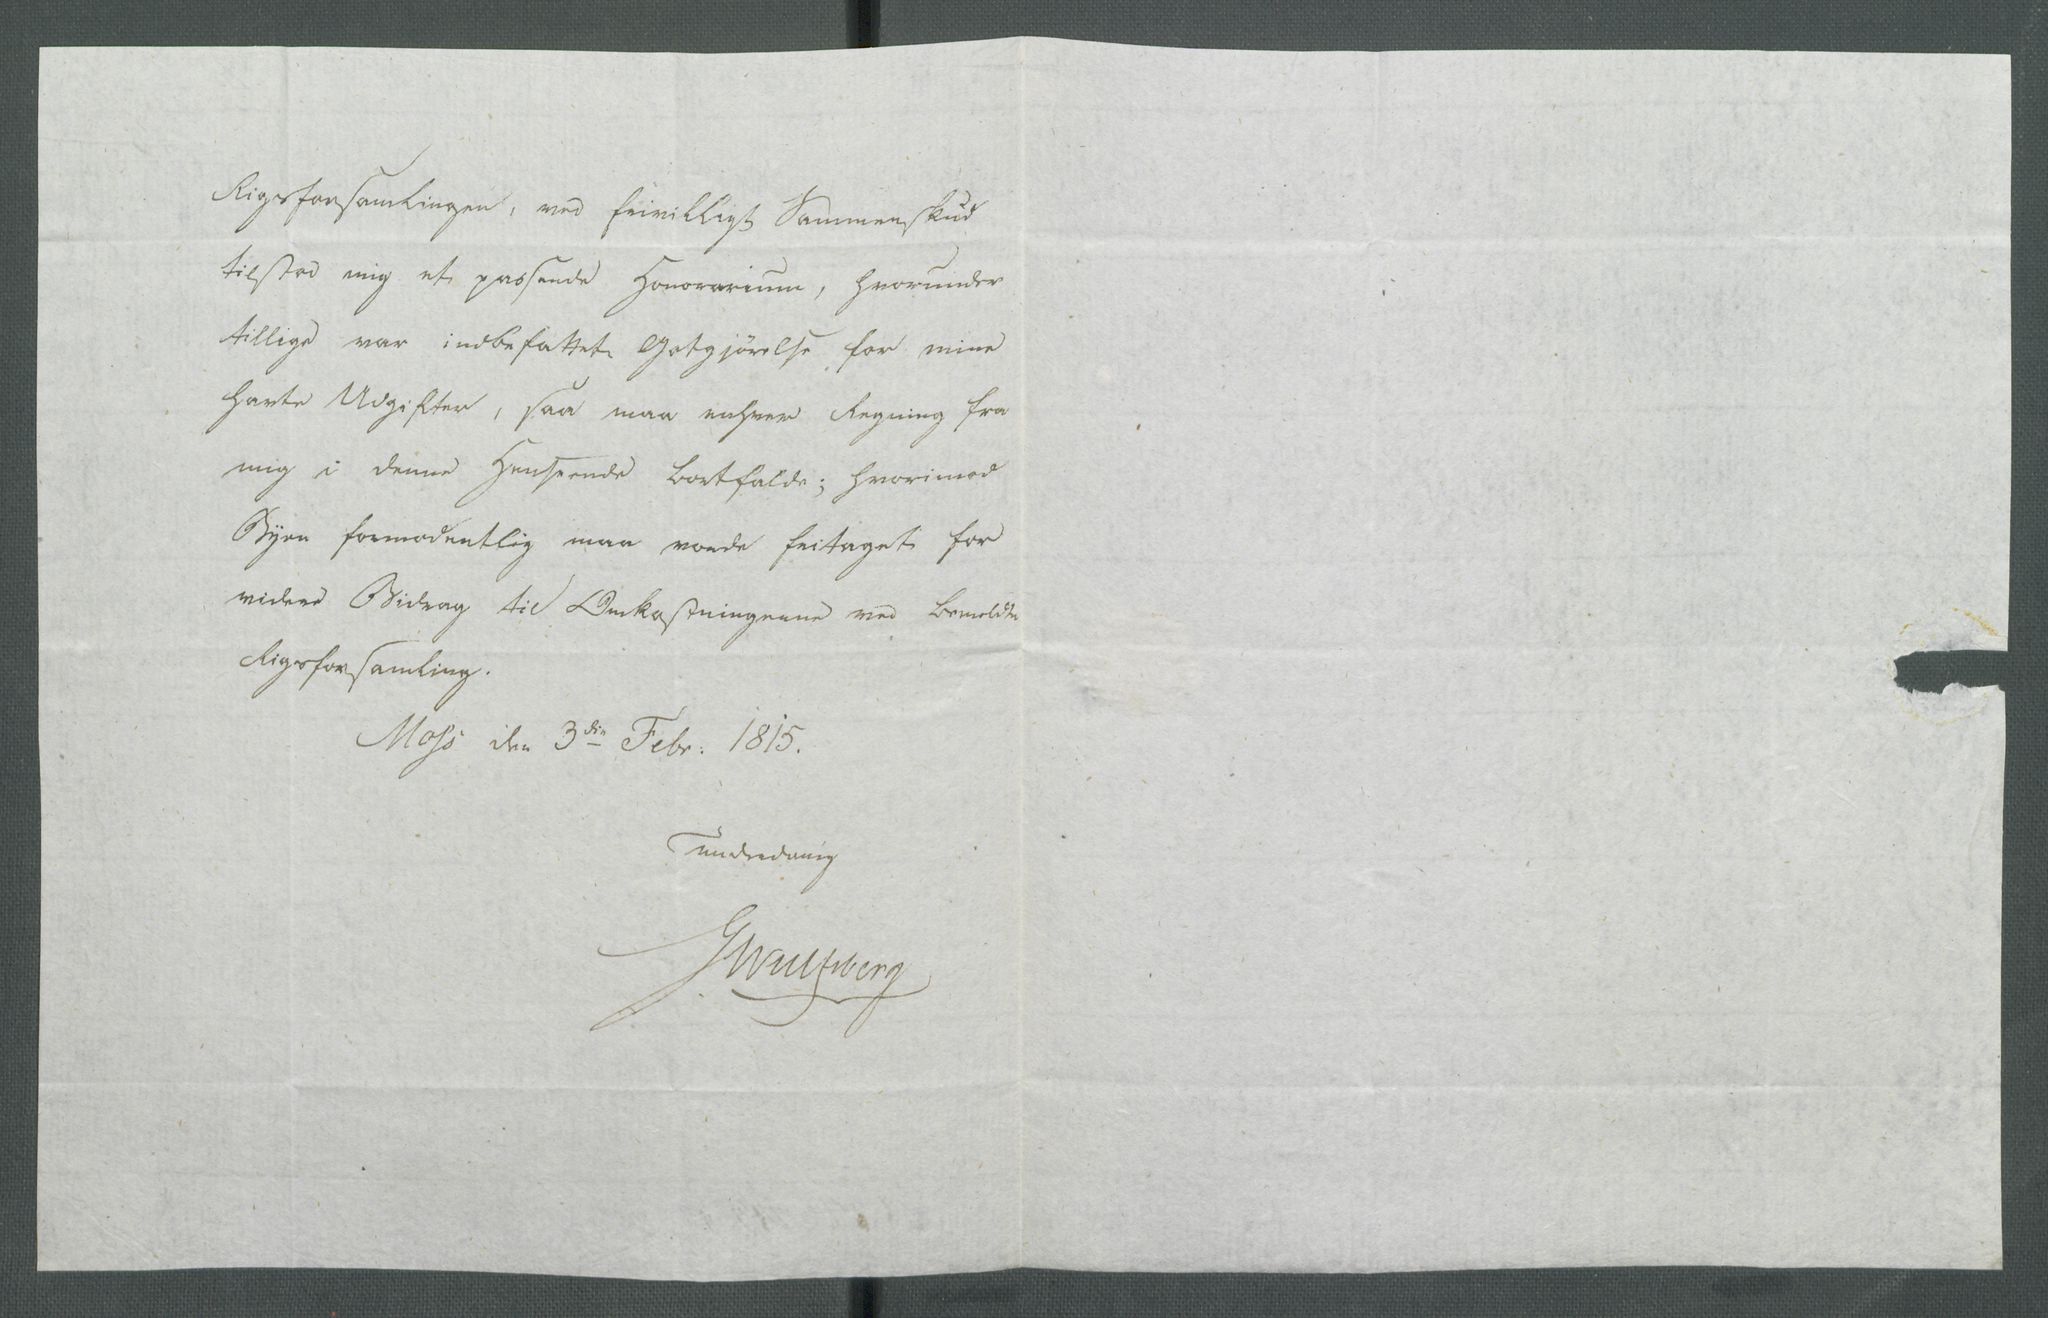 Rigsforsamlingen, ved frivilligt Sammenskud
tilstod mig et passende Honorarium, hvorunder
tillige var indbefattet Gotgjörelse for mine
havte Udgifter, saa maa enhver Regning fra
mig i denne Henseende bortfalde; hvorimod
Byen formodentlig maa vorde fritaget for
videre Bidrag til Omkostningerne ved bemeldte
Rigsforsamling.
Moss den 3die Febr. 1815.
Underdanig
GWulfsberg